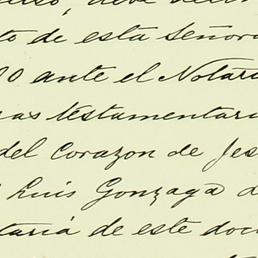 to de esta Señora
ante el Notari
testamentari
del Corazon de Jes
Luis Gonzaga d
taria de este doc